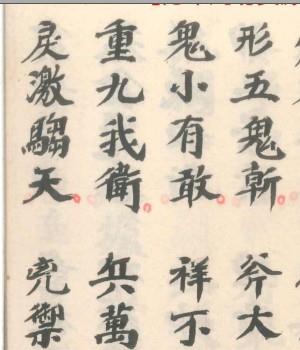 形五鬼斬。斧大
鬼小有敢。祥不
重九我衛。兵萬
戾激騶天。兇禦